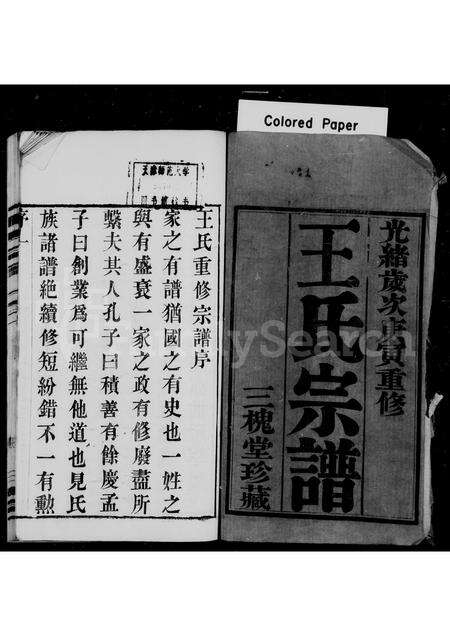 Colored Paper
光緒歲次庚寅重修
王氏宗譜
三槐堂珍藏
王氏重修宗譜序
家之有譜猶國之有史也一姓之
與有盛衰一家之政有修廢盡所
繫夫其人孔子曰積善有餘慶孟
子曰創業為可繼無他道也見氏
族諸譜絶續修短紛錯不一有勲
序一
FamilySearch